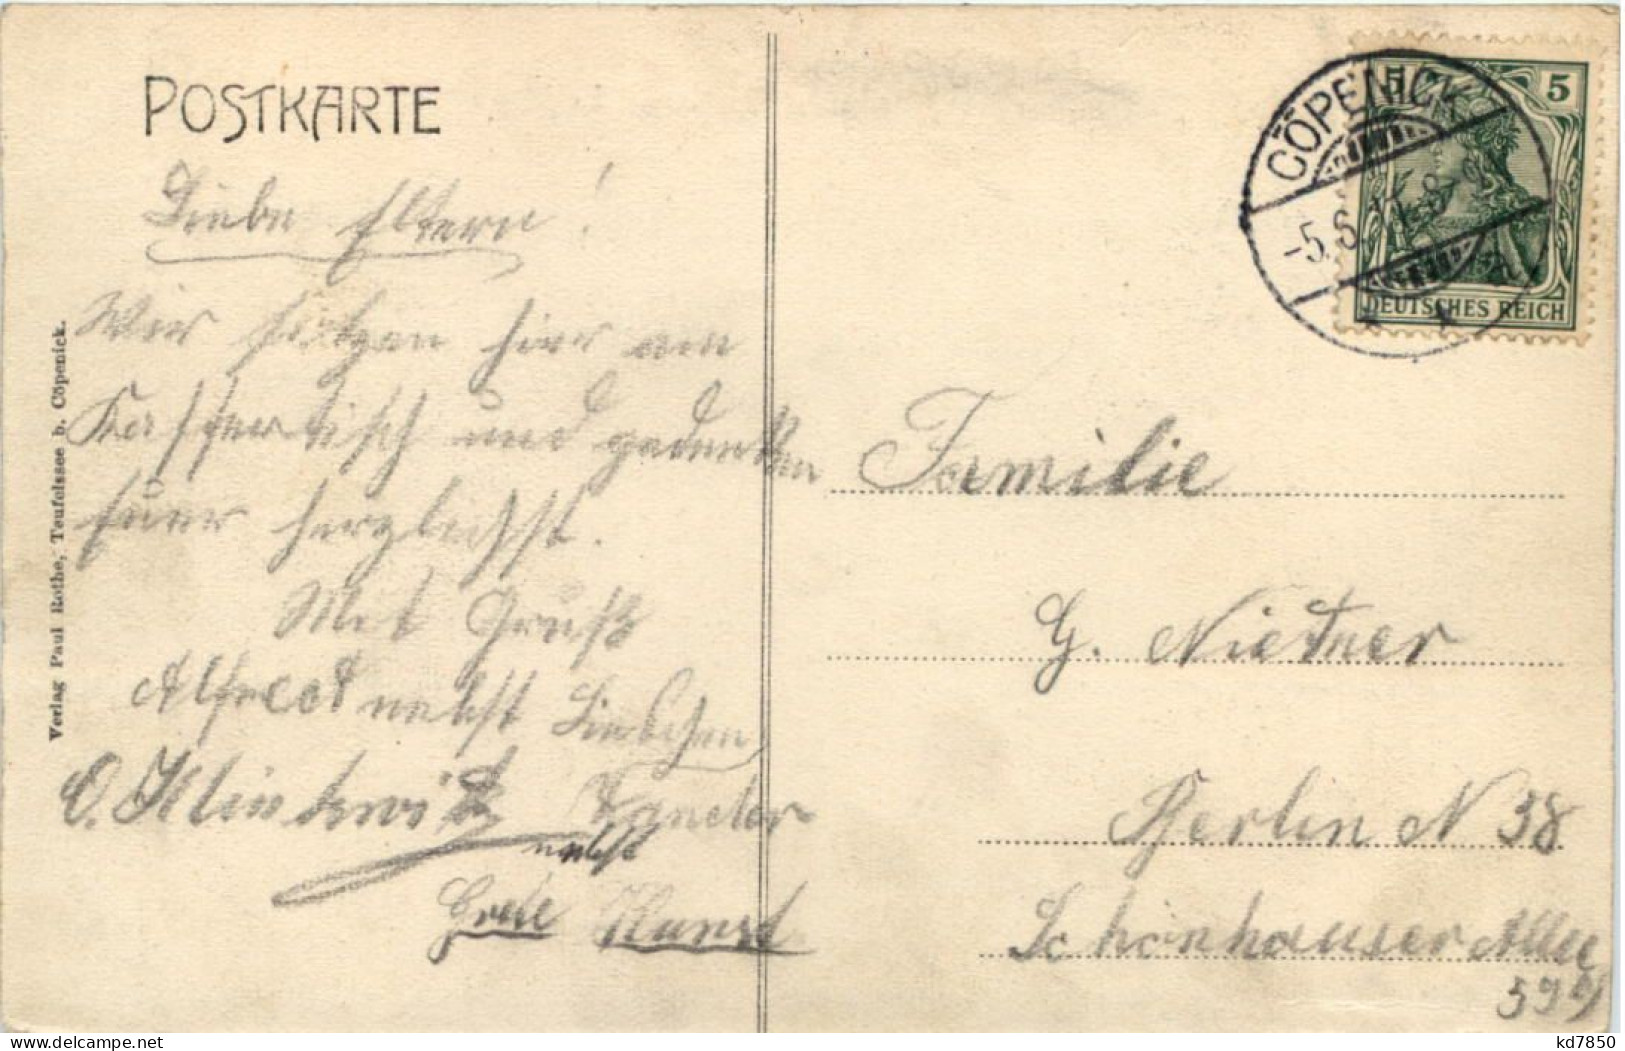 POSTKARTE
Liebe Eltern!
Wir sitzen hier am
Kaffeetisch und gedenken
Euer herzlichst.
Mit Gruß
Alfred nebst Liebchen
O. Klinkwitz
nebst
Grete Kunst
Verlag Paul Rothe, Teufelssee b. Cöpenick.
CÖPENICK
-5.6. 11.8-
5 5
DEUTSCHES REICH
Familie
G. Nietner
Berlin N 38
Schönhauser Allee
kd7850